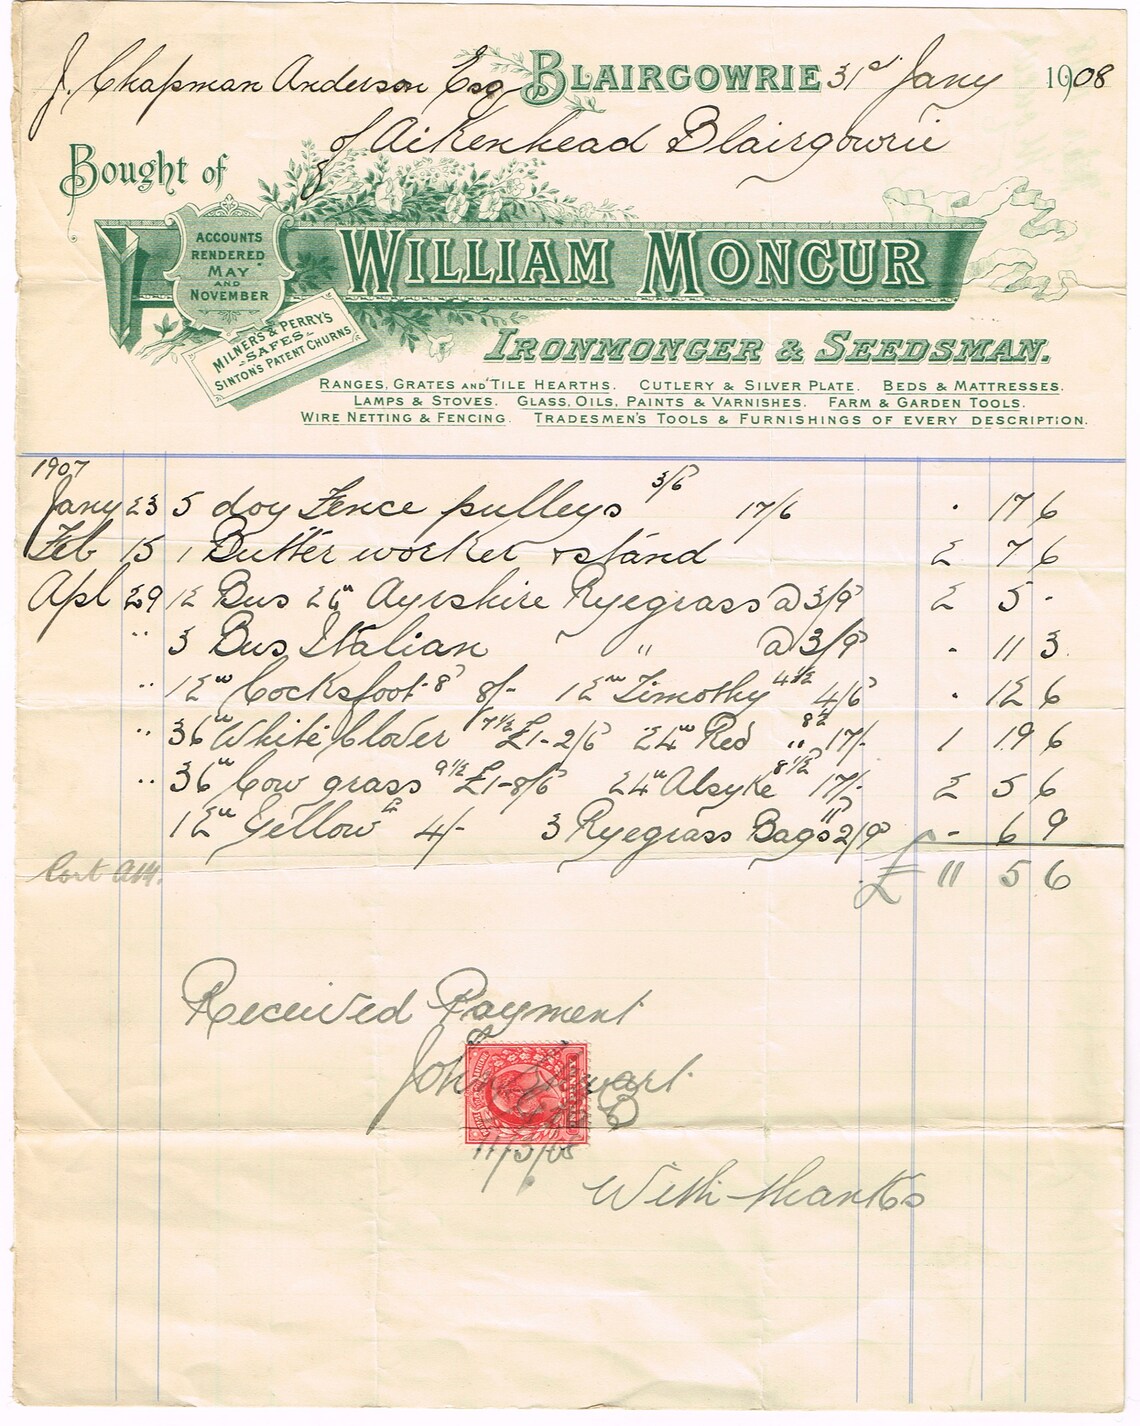 J. Chapman Anderson Esq, BLAIRGOWRIE 31st Jany 1908
of Aikenhead Blairgowrie
Bought of
ACCOUNTS
RENDERED
MAY
AND
NOVEMBER
WILLIAM MONCUR
MILNER'S & PERRY'S
SAFES
SINTON'S PATENT CHURNS
IRONMONGER & SEEDSMAN.
RANGES, GRATES AND TILE HEARTHS. CUTLERY & SILVER PLATE. BEDS & MATTRESSES.
LAMPS & STOVES. GLASS, OILS, PAINTS & VARNISHES. FARM & GARDEN TOOLS.
WIRE NETTING & FENCING. TRADESMEN'S TOOLS & FURNISHINGS OF EVERY DESCRIPTION.
1907
Jany 23 5 doz Fence pulleys 3/6 17/6 . 17 6
Feb 15 1 Butter worker & stand 2 7 6
Apl 29 12 Bus Ayrshire Ryegrass @ 3/9 2 5 -
" 3 Bus Italian " @ 3/9 - 11 3
" 12 Cocksfoot 8 8/- 12 Timothy 4½ 4/6 . 12 6
" 36 White Clover 7½ £1-2/6 24 Red " 8½ 17/- 1 19 6
" 36 Cow grass 9½ £1-8/6 24 Alsyke 8½ 17/- 2 5 6
12 Yellow 4/- 3 Ryegrass Bags 11 2/9 - 6 9
£ 11 5 6
Received Payment
John
11/3/08
With thanks